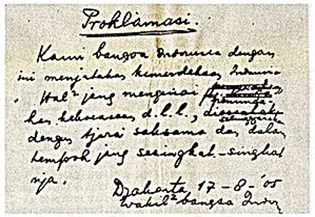 Proklamasi.
Kami bangsa Indonesia dengan
ini menjatakan kemerdekaan Indonesia
Hal² jang mengenai
kekoeasaan d.l.l.,
dengan tjara saksama dan dalam
tempoh jang sesingkat-singkat
nja.
Djakarta, 17-8-'05
Wakil² bangsa Indo